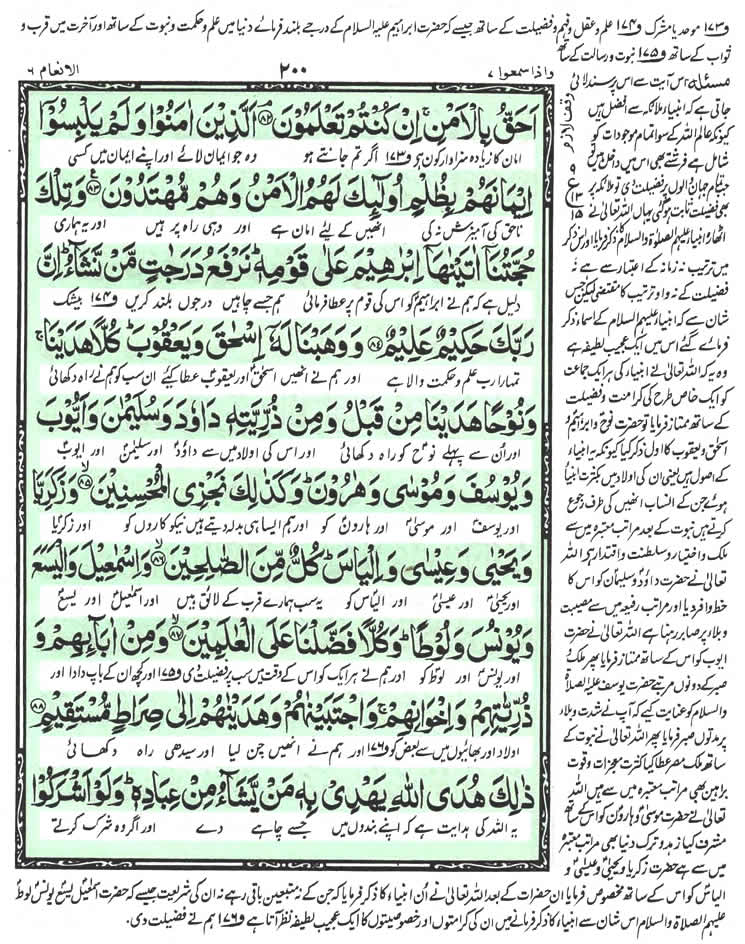 ف۱۷۳ موحد یا مشرک ف۱۷۴ علم و عقل و فہم و فضیلت کے ساتھ جیسے کہ حضرت ابراہیم علیہ السلام کے درجے بلند فرمائے دنیا میں علم و حکمت و نبوت کے ساتھ اور آخرت میں قرب و
ثواب کے ساتھ ف۱۷۵ نبوت و رسالت کے ساتھ
واذا سمعوا ۷
۲۰۰
الانعام ۶
اَحَقُّ بِالْاَمْنِ ۚ اِنْ كُنْتُمْ تَعْلَمُوْنَ ۘ۝۸۱ اَلَّذِیْنَ اٰمَنُوْا وَ لَمْ یَلْبِسُوْۤا
امان کا زیادہ سزاوار کون ہے ف۱۷۳ اگر تم جانتے ہو وہ جو ایمان لائے اور اپنے ایمان میں کسی
اِیْمَانَهُمْ بِظُلْمٍ اُولٰٓىِٕكَ لَهُمُ الْاَمْنُ وَ هُمْ مُّهْتَدُوْنَ ۠۝۸۲ وَ تِلْكَ
ناحق کی آمیزش نہ کی انھیں کے لیے امان ہے اور وہی راہ پر ہیں اور یہ ہماری
حُجَّتُنَاۤ اٰتَیْنٰهَاۤ اِبْرٰهِیْمَ عَلٰى قَوْمِهٖ ؕ نَرْفَعُ دَرَجٰتٍ مَّنْ نَّشَآءُ ؕ اِنَّ
دلیل ہے کہ ہم نے ابراہیم کو اس کی قوم پر عطا فرمائی ہم جسے چاہیں درجوں بلند کریں ف۱۷۴ بیشک
رَبَّكَ حَكِیْمٌ عَلِیْمٌ ۝۸۳ وَ وَهَبْنَا لَهٗۤ اِسْحٰقَ وَ یَعْقُوْبَ ؕ كُلًّا هَدَیْنَا ۚ
تمہارا رب علم و حکمت والا ہے اور ہم نے انھیں اسحٰق اور یعقوب عطا کیے ان سب کو ہم نے راہ دکھائی
وَ نُوْحًا هَدَیْنَا مِنْ قَبْلُ وَ مِنْ ذُرِّیَّتِهٖ دَاوٗدَ وَ سُلَیْمٰنَ وَ اَیُّوْبَ
اور ان سے پہلے نوح کو راہ دکھائی اور اس کی اولاد میں سے داؤد اور سلیمٰن اور ایوب
وَ یُوْسُفَ وَ مُوْسٰى وَ هٰرُوْنَ ؕ وَ كَذٰلِكَ نَجْزِی الْمُحْسِنِیْنَ ۙ۝۸۴ وَ زَكَرِیَّا
اور یوسف اور موسیٰ اور ہارون کو اور ہم ایسا ہی بدلہ دیتے ہیں نیکو کاروں کو اور زکریا
وَ یَحْیٰى وَ عِیْسٰى وَ اِلْیَاسَ ؕ كُلٌّ مِّنَ الصّٰلِحِیْنَ ۙ۝۸۵ وَ اِسْمٰعِیْلَ وَ الْیَسَعَ
اور یحیٰی اور عیسیٰ اور الیاس کو یہ سب ہمارے قرب کے لائق ہیں اور اسمٰعیل اور یسع
وَ یُوْنُسَ وَ لُوْطًا ؕ وَ كُلًّا فَضَّلْنَا عَلَى الْعٰلَمِیْنَ ۙ۝۸۶ وَ مِنْ اٰبَآىِٕهِمْ وَ
اور یونس اور لوط کو اور ہم نے ہر ایک کو اس کے وقت میں سب پر فضیلت دی ف۱۷۵ اور کچھ ان کے باپ دادا اور
ذُرِّیّٰتِهِمْ وَ اِخْوَانِهِمْ ۚ وَ اجْتَبَیْنٰهُمْ وَ هَدَیْنٰهُمْ اِلٰى صِرَاطٍ مُّسْتَقِیْمٍ ۝۸۷
اولاد اور بھائیوں میں سے بعض کو ف۱۷۶ اور ہم نے انھیں چن لیا اور سیدھی راہ دکھائی
ذٰلِكَ هُدَى اللّٰهِ یَهْدِیْ بِهٖ مَنْ یَّشَآءُ مِنْ عِبَادِهٖ ؕ وَ لَوْ اَشْرَكُوْا
یہ اللہ کی ہدایت ہے کہ اپنے بندوں میں جسے چاہے دے اور اگر وہ شرک کرتے
مسئلہ اس آیت سے اس پر سند لائی
جاتی ہے کہ انبیاء ملائکہ سے افضل ہیں
کیونکہ عالم اللہ کے سوا تمام موجودات کو
شامل ہے فرشتے بھی اس میں داخل ہیں
جب تمام جہان والوں پر فضیلت دی تو ملائکہ پر
بھی فضیلت ثابت ہوگئی یہاں اللہ تعالیٰ نے
اٹھارہ انبیاء علیہم الصلوٰۃ والسلام کا ذکر فرمایا اور اس ذکر
میں ترتیب نہ زمانہ کے اعتبار سے ہے نہ
فضیلت کے نہ واو ترتیب کا مقتضی لیکن جس
شان سے کہ انبیاء علیہم السلام کے اسماء ذکر
فرمائے گئے اس میں ایک عجیب لطیفہ ہے
وہ یہ کہ اللہ تعالیٰ نے انبیاء کی ہر ایک جماعت
کو ایک خاص طرح کی کرامت و فضیلت
کے ساتھ ممتاز فرمایا تو حضرت نوح و ابراہیم
اسحٰق و یعقوب کا اول ذکر کیا کیونکہ یہ انبیاء
کے اصول ہیں یعنی ان کی اولاد میں بکثرت انبیاء
ہوئے جن کے انساب انھیں کی طرف رجوع
کرتے ہیں نبوت کے بعد مراتب معتبرہ میں سے
ملک و اختیار و سلطنت و اقتدار ہے اللہ
تعالیٰ نے حضرت داؤد و سلیمان کو اس کا
حظ وافر دیا اور مراتب رفیعہ میں سے مصیبت
و بلاء پر صابر رہنا ہے اللہ تعالیٰ نے حضرت
ایوب کو اس کے ساتھ ممتاز فرمایا پھر ملک و
صبر کے دونوں مرتبے حضرت یوسف علیہ الصلاۃ
والسلام کو عنایت کیے کہ آپ نے شدت و بلاء
پر مدتوں صبر فرمایا پھر اللہ تعالیٰ نے نبوت کے
ساتھ ملک مصر عطا کیا کثرت معجزات و قوت
براہین بھی مراتب معتبرہ میں سے ہیں اللہ
تعالیٰ نے حضرت موسیٰ و ہارون کو اس کے ساتھ
مشرف کیا زہد و ترک دنیا بھی مراتب معتبرہ
میں سے ہے حضرت زکریا و یحیٰی و عیسیٰ و
الیاس کو اس کے ساتھ مخصوص فرمایا ان حضرات کے بعد اللہ تعالیٰ نے ان انبیاء کا ذکر فرمایا کہ جن کے نہ متبعین باقی رہے نہ ان کی شریعت جیسے کہ حضرت اسمٰعیل یسع یونس لوط
علیہم الصلاۃ والسلام اس شان سے انبیاء کا ذکر فرمانے میں ان کی کرامتوں اور خصوصیتوں کا ایک عجیب لطیفہ نظر آتا ہے ف۱۷۶ ہم نے فضیلت دی۔